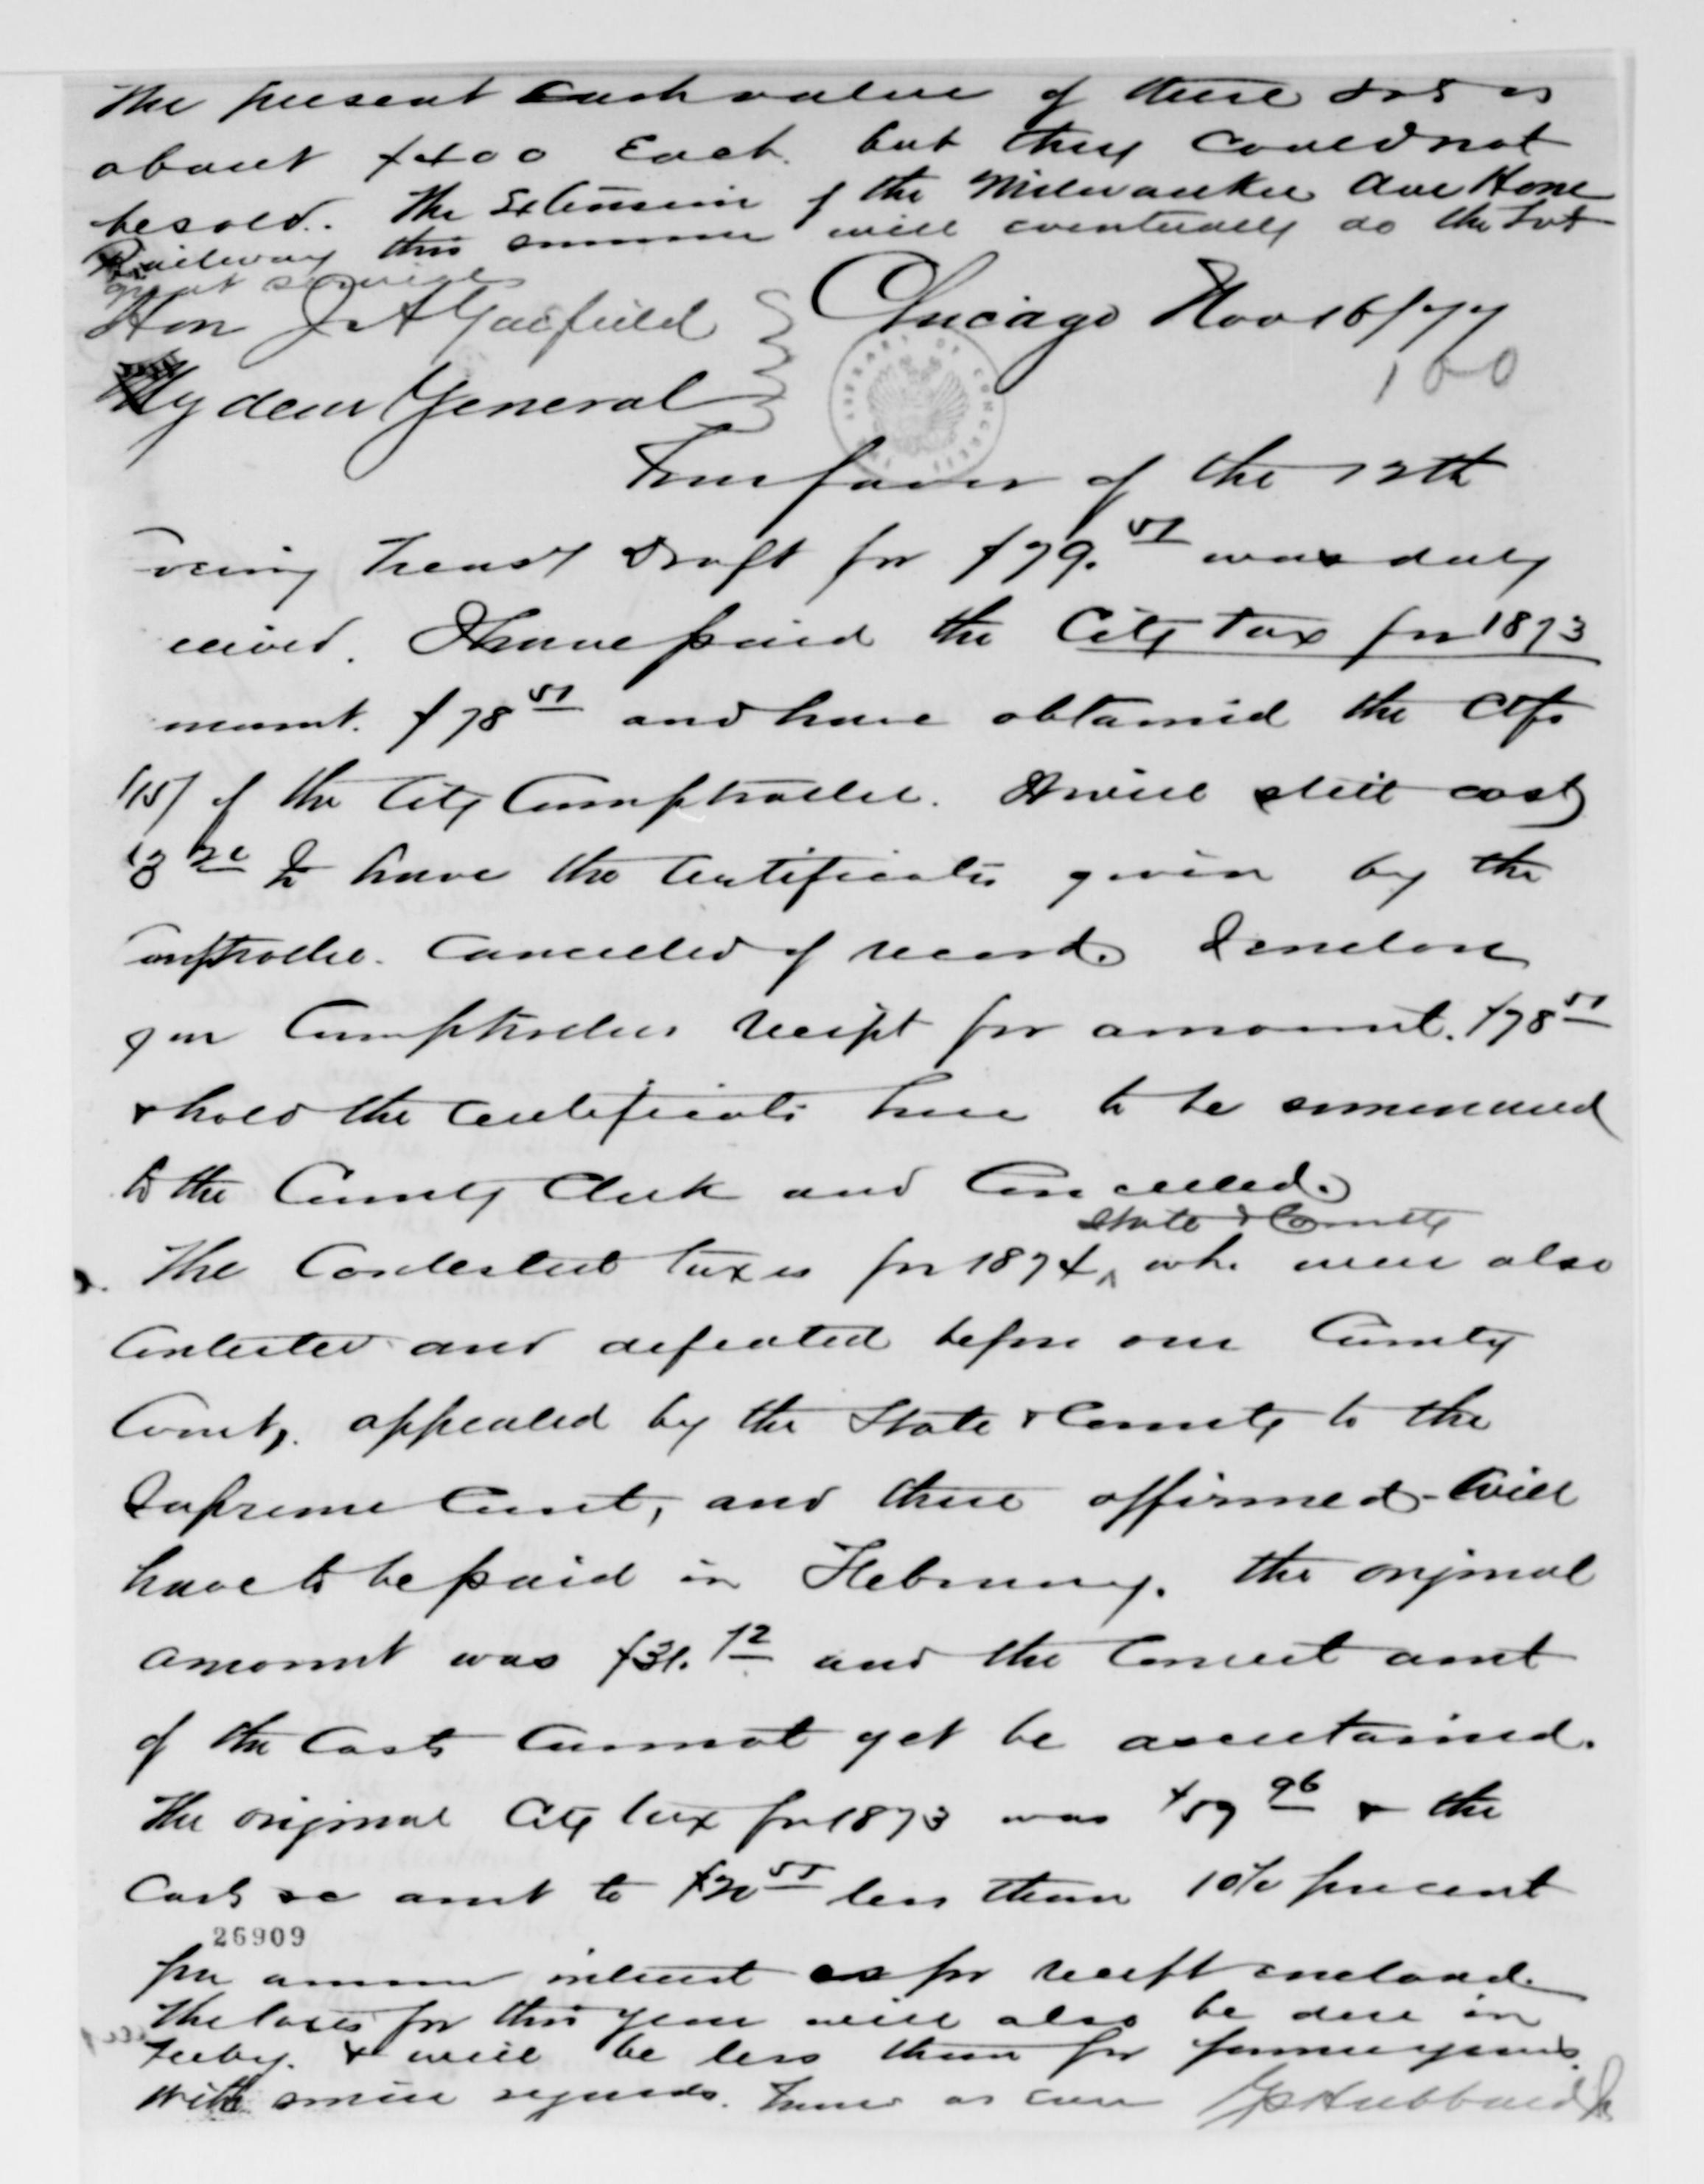 The present Cash value of these Lots is
about $400 Each. but they could not
be sold. The Extension of the Milwaukee Ave Horse
Railway this summer will eventually do the Lots
great service
Hon J A Garfield Chicago Nov 16/77
160
My dear General
Your favor of the 12th
Treasy Draft for $79.51 was duly
ceived. I have paid the City Tax for 1873
mount. $78 51 and have obtained the Ctfs
(15) of the City Comptroller. It will still cost
to have the Certificates given by the
omptroller. Cancelled of record. I enclose
you Comptrollers receipt for amount. $78 51
& hold the Certificates here to be surrendered
to the County Clerk and Cancelled.
State & County
The Contested taxes for 1874, wh. were also
Contested and defeated before our County
Court, appealed by the State & County to the
Supreme Court, and there affirmed - will
have to be paid in February. The original
amount was $31.12 and the Correct amt
of the Costs Cannot yet be ascertained.
The original City tax for 1873 was $57 96 & the
Costs &c amt to $20 55 less than 10% per cent
26909
per annum interest as pr receipt enclosed.
The taxes for this year will also be due in
Feby. & will be less than for former years.
With sincere regards. Yours as ever G S Hubbard Jr